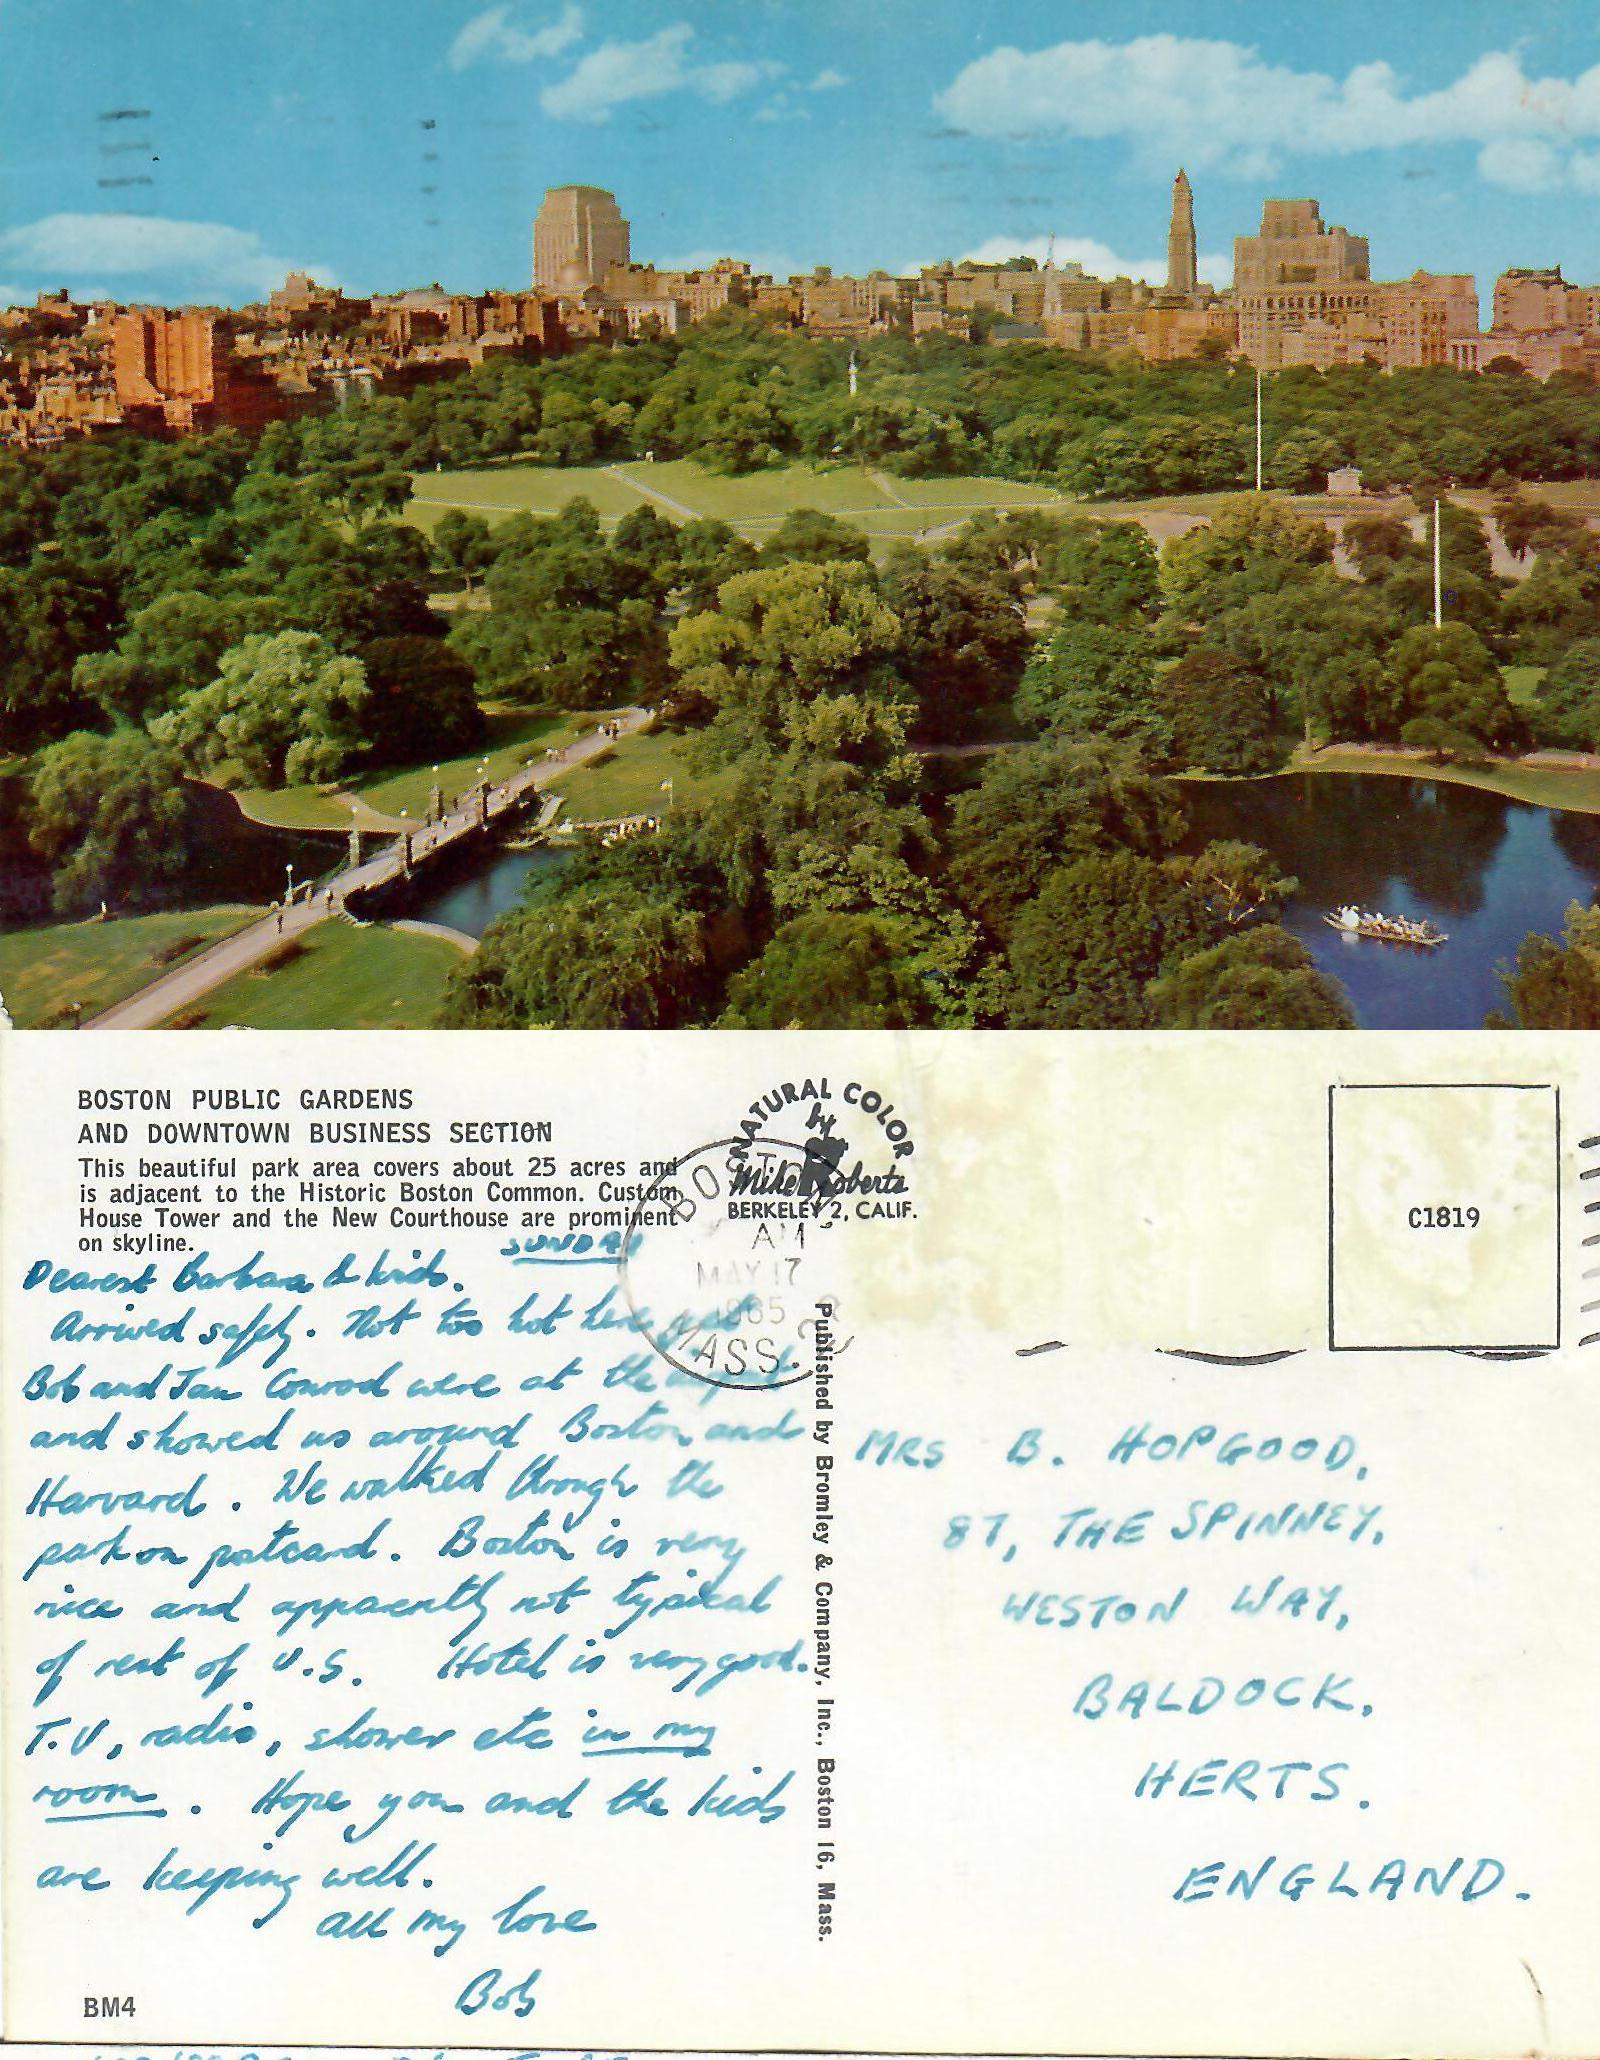 BOSTON PUBLIC GARDENS
AND DOWNTOWN BUSINESS SECTION
This beautiful park area covers about 25 acres and
is adjacent to the Historic Boston Common. Custom
House Tower and the New Courthouse are prominent
on skyline.
SUNDAY
Dearest Barbara & kids.
Arrived safely. Not too hot here yet
Bob and Jan Conrod were at the airport
and showed us around Boston and
Harvard. We walked through the
park on postcard. Boston is very
nice and apparently not typical
of rest of U.S. Hotel is very good.
T.V, radio, shower etc in my
room. Hope you and the kids
are keeping well.
all my love
Bob
BM4
NATURAL COLOR
by
Mike Roberts
BERKELEY 2, CALIF.
BOSTON,
AM
MAY 17
1965
MASS.
Published by Bromley & Company, Inc., Boston 16, Mass.
C1819
MRS B. HOPGOOD,
87, THE SPINNEY,
WESTON WAY,
BALDOCK,
HERTS.
ENGLAND.